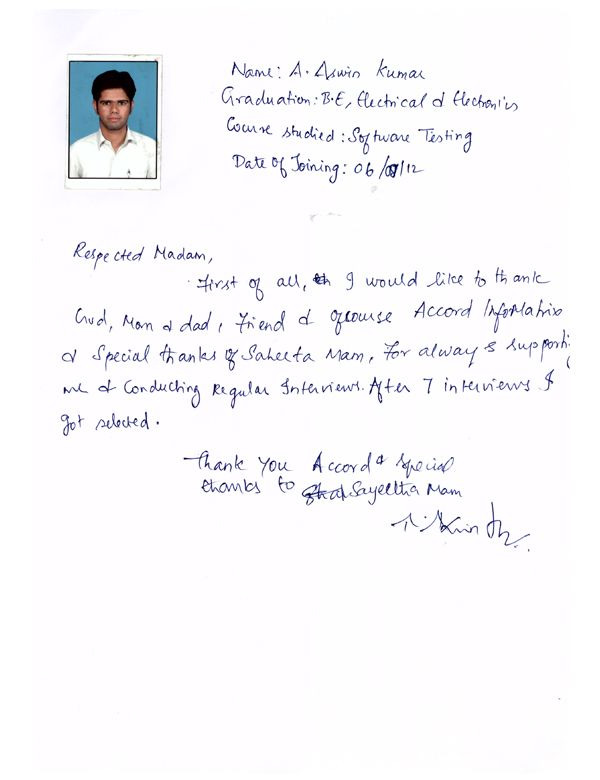 Name: A. Aswin Kumar
Graduation: B.E, Electrical & Electronics
Course studied: Software Testing
Date of Joining: 06/07/12
Respected Madam,
First of all, I would like to thank
God, Mom & dad, Friend & ofcourse Accord Informatrix
& Special thanks of Saheeta Mam, For always supporti
me & Conducting Regular Interviews. After 7 interviews I
got selected.
Thank You Accord & Special
thanks to Sayeetha Mam